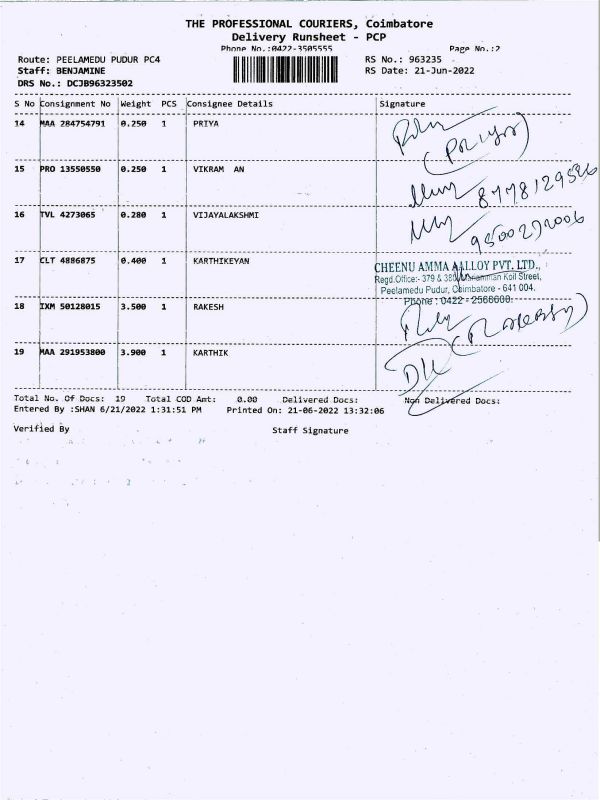 THE PROFESSIONAL COURIERS, Coimbatore
Delivery Runsheet - PCP
Phone No.:0422-3505555 Page No.:2
Route: PEELAMEDU PUDUR PC4 RS No.: 963235
Staff: BENJAMINE RS Date: 21-Jun-2022
DRS No.: DCJB96323502
S No Consignment No Weight PCS Consignee Details Signature
14 MAA 284754791 0.250 1 PRIYA
(Priya)
15 PRO 13550550 0.250 1 VIKRAM AN
8778129586
16 TVL 4273065 0.280 1 VIJAYALAKSHMI
9500292006
17 CLT 4886875 0.400 1 KARTHIKEYAN
CHEENU AMMA AALLOY PVT. LTD.,
Regd.Office:- 379 & 380, Mariamman Koil Street,
Peelamedu Pudur, Coimbatore - 641 004.
Phone : 0422 - 2566600.
18 IXM 50128015 3.500 1 RAKESH
19 MAA 291953800 3.900 1 KARTHIK
Total No. Of Docs: 19 Total COD Amt: 0.00 Delivered Docs: Non Delivered Docs:
Entered By :SHAN 6/21/2022 1:31:51 PM Printed On: 21-06-2022 13:32:06
Verified By Staff Signature